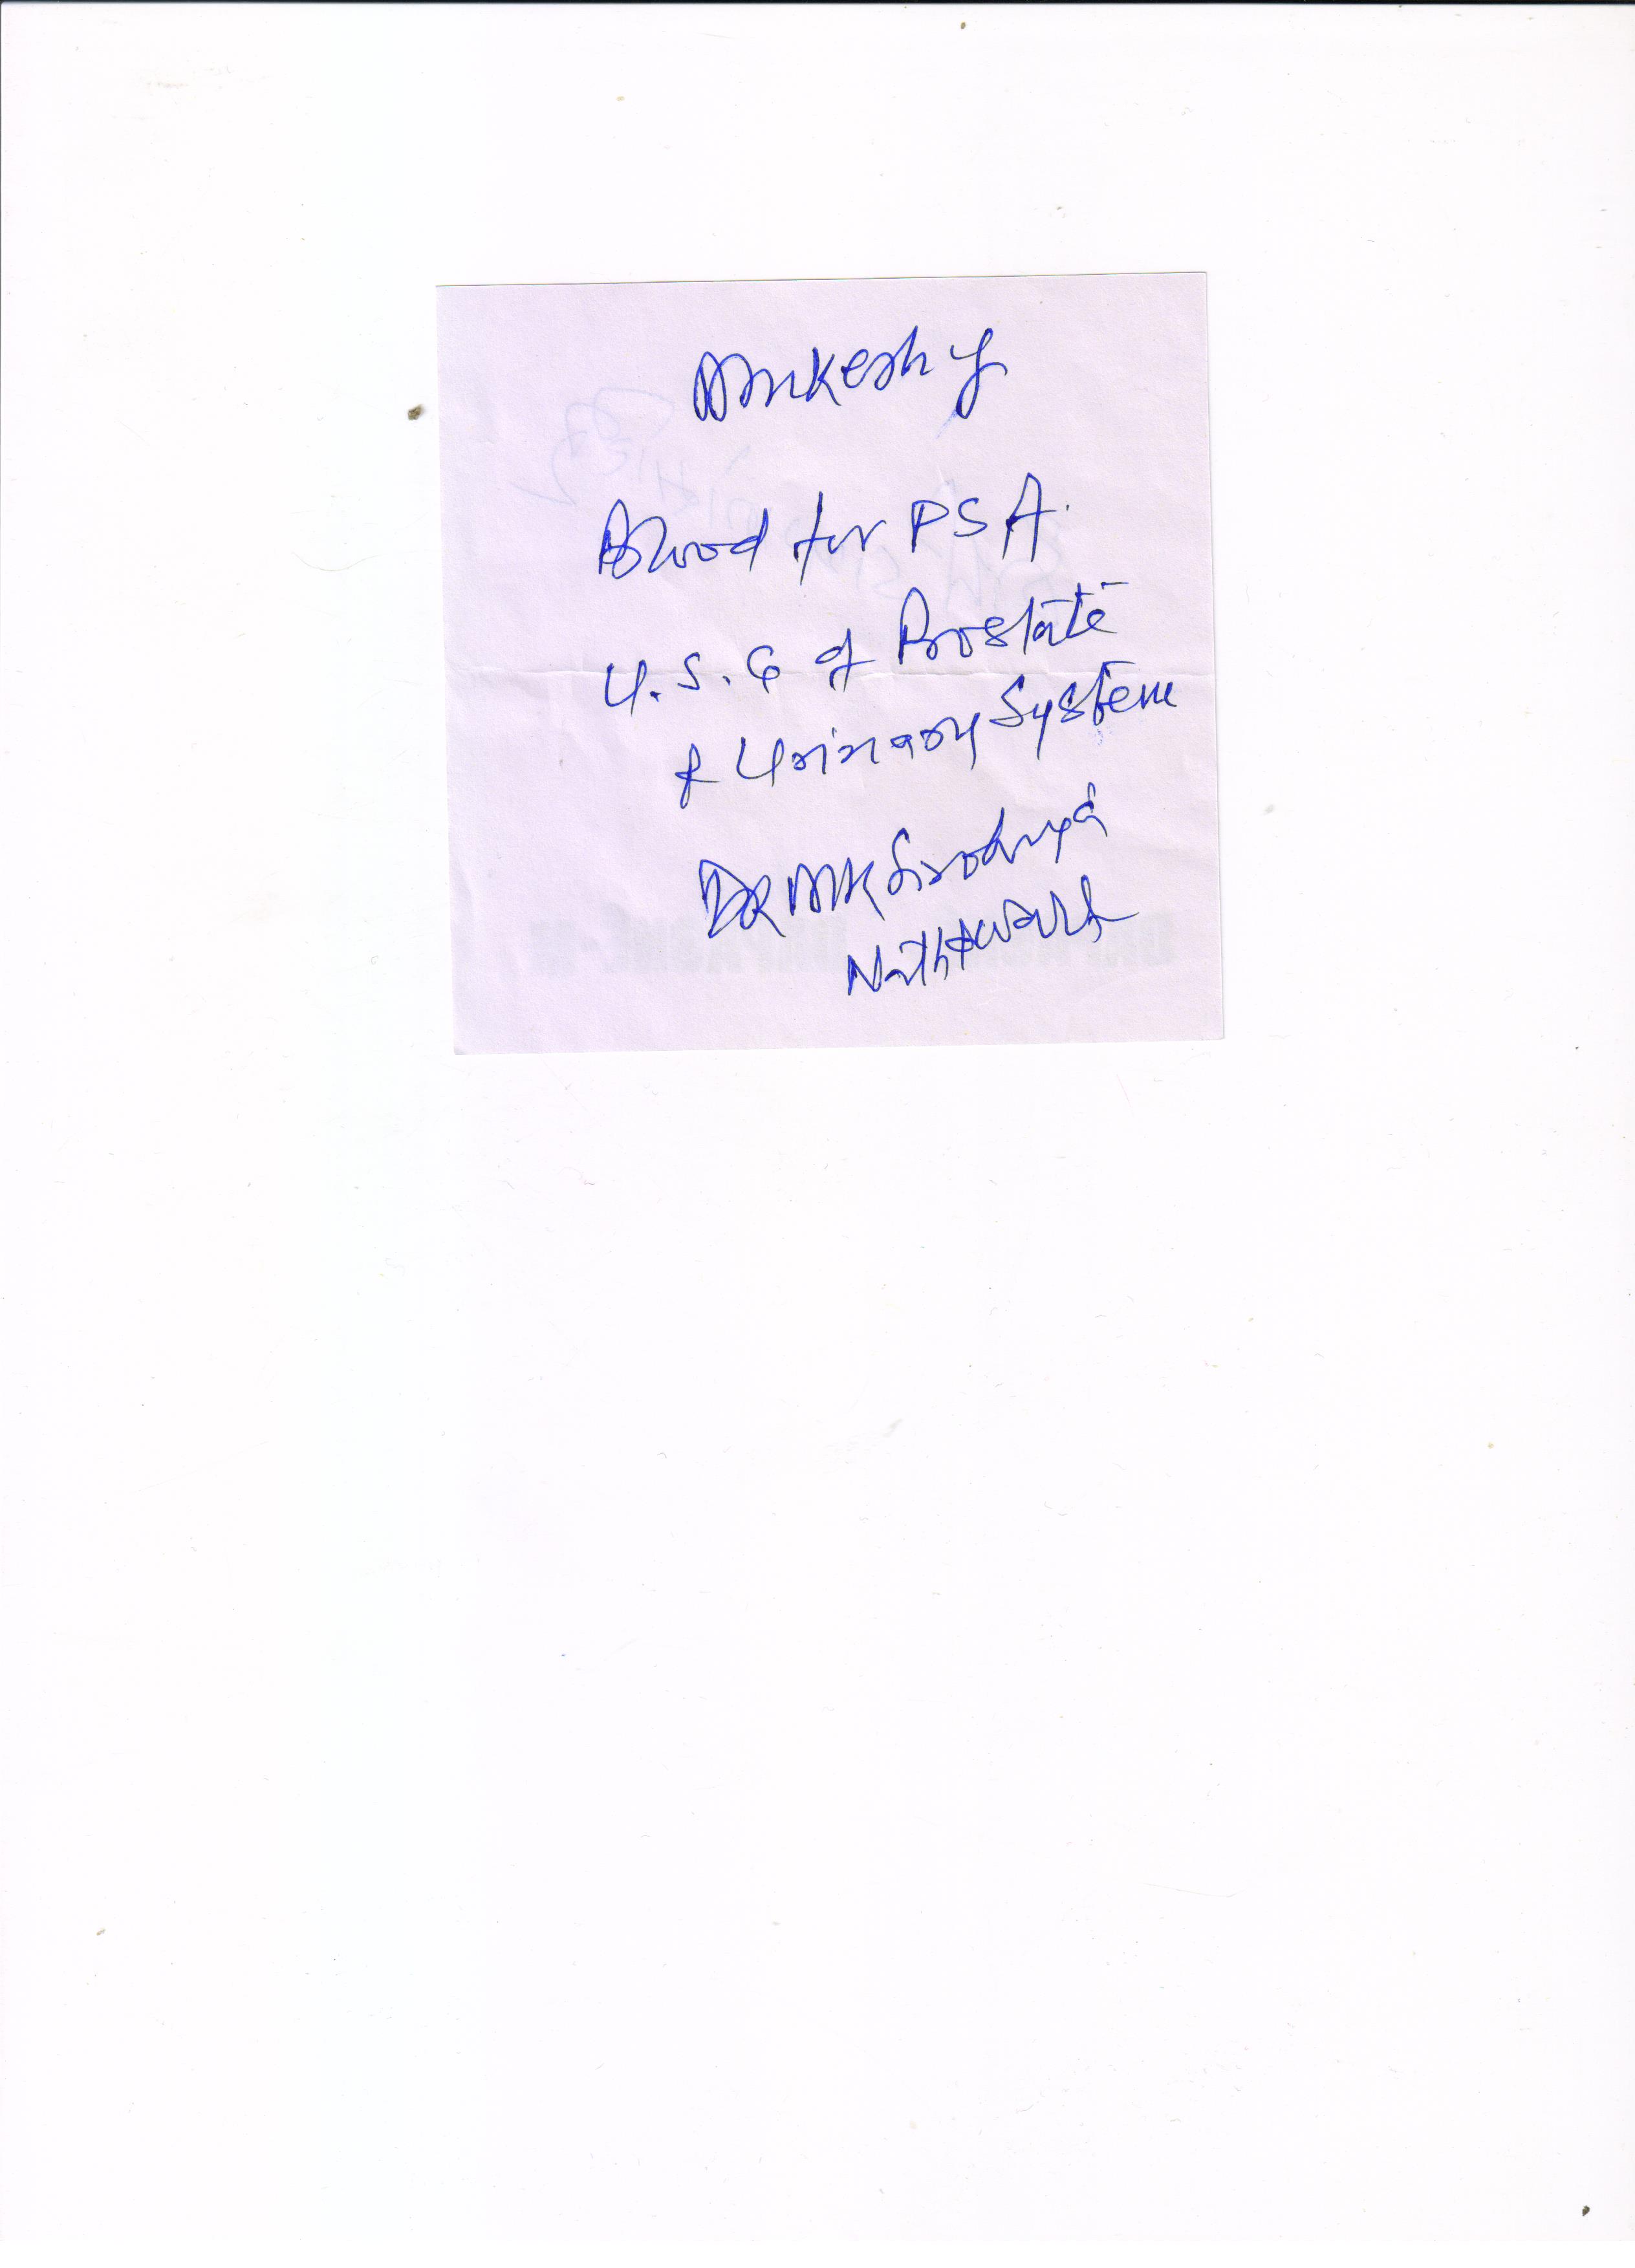 Mukesh Ji
Blood for PSA.
U.S.G of Prostate
& Urinary System
DR MK Sirohiya
Nathdwara